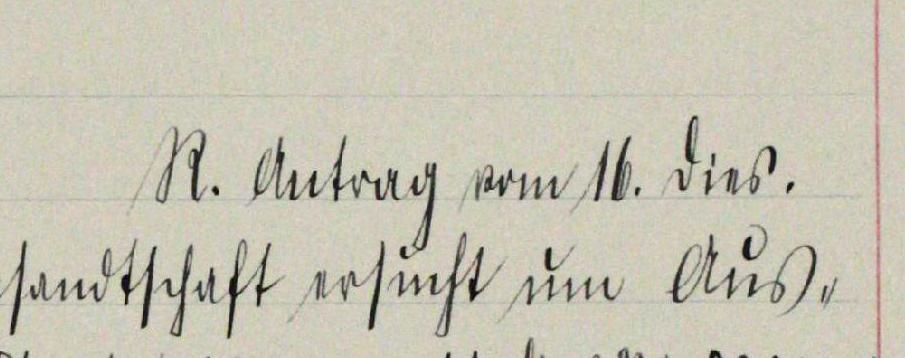 R. Antrag vom 16. dies.
sandtschaft ersucht um Aus„